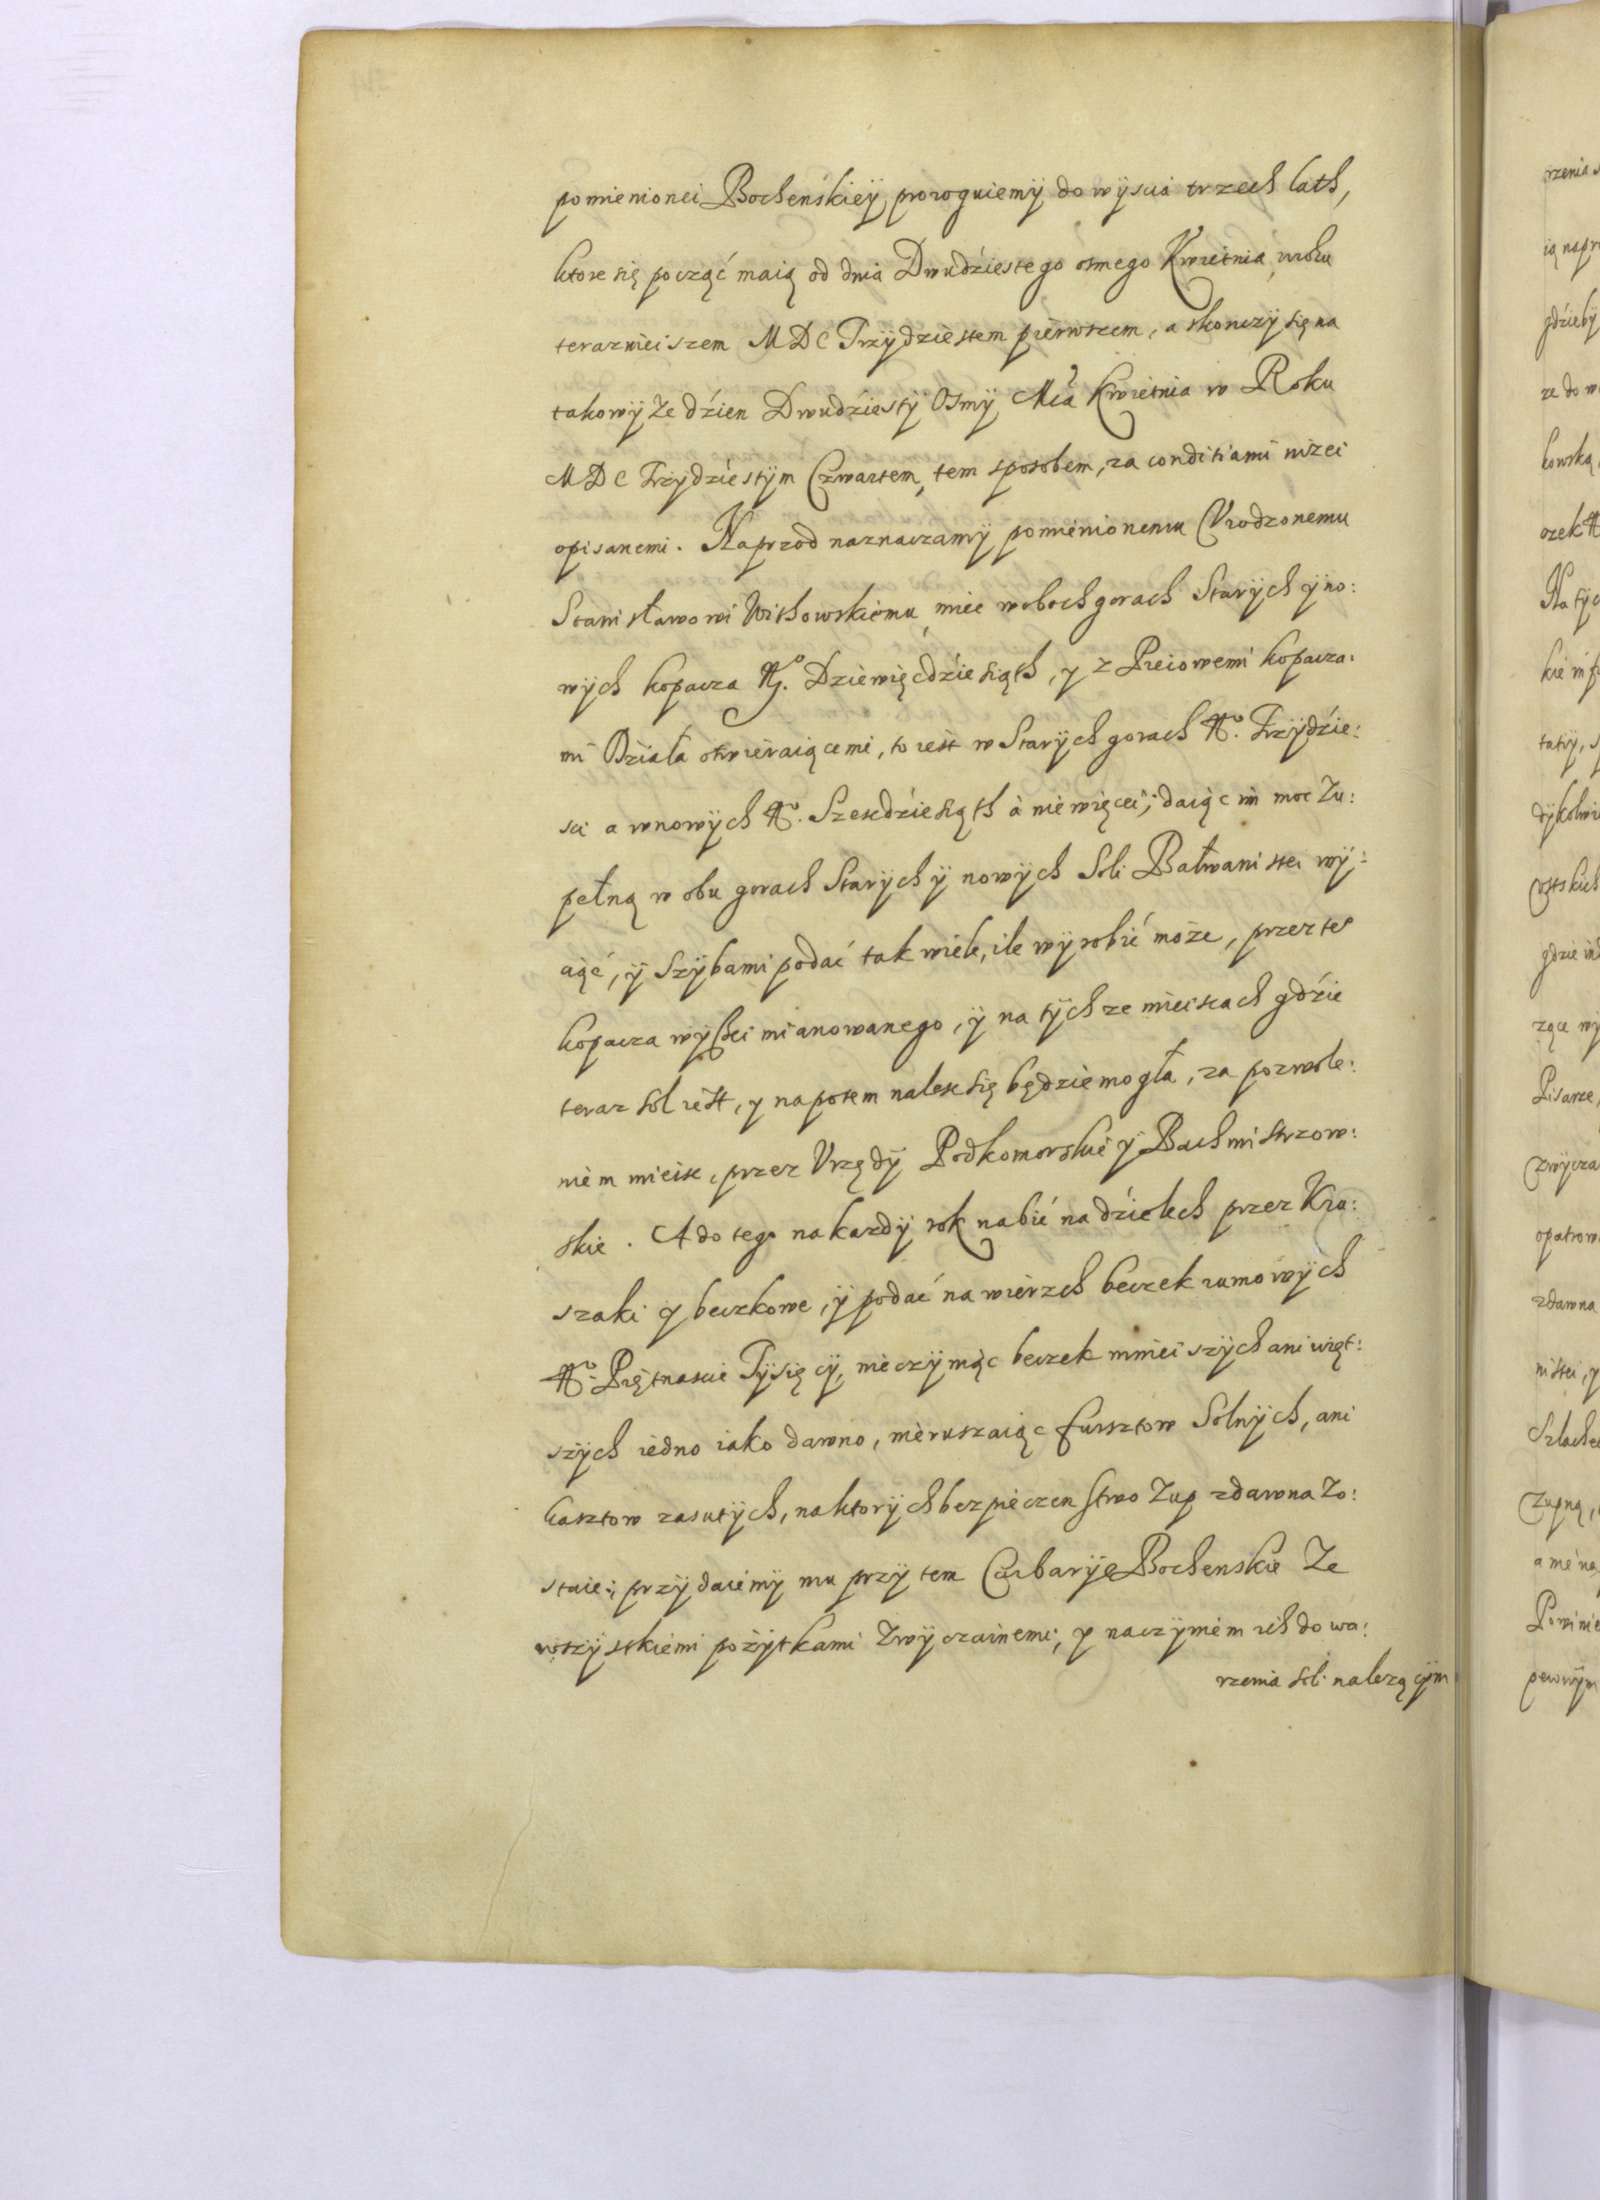 pomienionei Bochenskiey proroguiemy do wyscia trzech lath,
ktore się począć maią od dnia Dwudziestego osmego Kwietnia, wroku
teraznieiszem MDC Trzydziestem pierwszem, a skonczy się na
takowyże dzien Dwudziesty Osmy Mca Kwietnia w Roku
MDC Trzydziestym Czwartem, tem sposobem, za conditiami nizei
opisanemi. Naprzod naznaczamy pomienionemu Urodzonemu
Stanisławowi Withowskiemu, miec wobochgorach Starych y no:
wych kopacza No. Dziewięcdziesiąth, y z Pieiowemi kopacza:
mi Działa otwieraiącemi, to iest w Starych gorach No. Trzydzie:
sci a wnowych No. Szescdziesiąth à nie więcei; daiąc im moc Zu:
pełną w obu gorach Starych y nowych Soli Bałwanistei wy:
ciąć, y Szybami podać tak wiele, ile wyrobić może, przez tes
kopacza wyszei mianowanego, y na tychze mieiscach gdzie
teraz sol iest, y napotem nalesc się będzie mogła, za pozwole:
niem mieisc, przez Vrzędy Podkomorskie y Bachmistrzow:
skie. A do tego na kazdy rok nabić na dzielech przez Kru:
szaki y beczkowe, y podać na wierzch beczek rumowych
No. Piętnascie Tysięcy, nie czyniąc beczek mnieiszych ani więt:
szych iedno iako dawno, nieruszaiąc fursztow Solnych, ani
kasztow zasutych, naktorych bezpieczenstwo Zup zdawna Zo:
staie; przydaiemy mu przytem Carbarye Bochenskie Ze
wszystkiemi pożytkami Zwyczainemi, y naczyniem ich do wa:
rzenia soli nalezącym